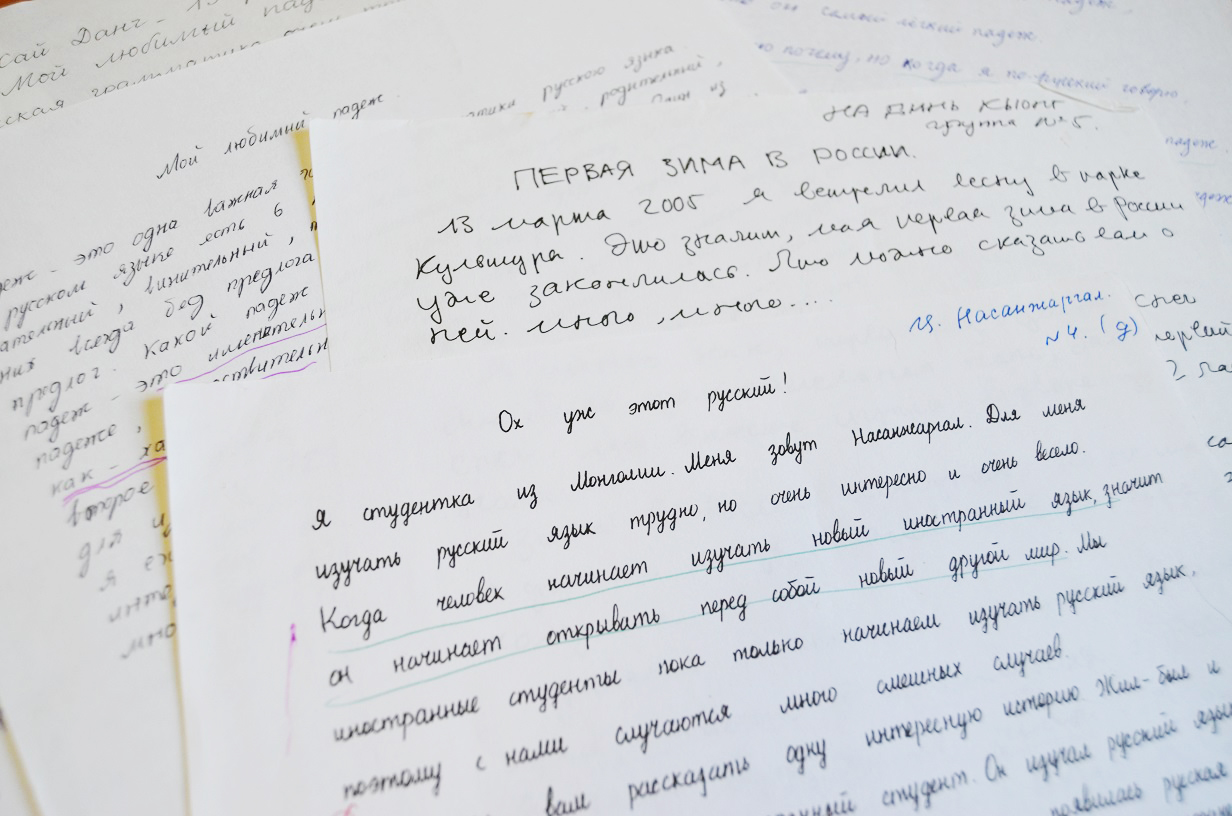 сай Данг - 13
Мой любимый паде
ская грамматика
он самый лёгкий падеж.
почему, но когда я по-русский говорю,
падеж.
Мой любимий падеж.
тики русского языка.
родительный,
Один из
деж - это одна важная
русском языке есть 6
ательный, винительный,
них всегда без предлога
предлог. Какой падеж
падеж - это именительн
падеже,
как - ха
второе
для
НА ДИНЬ КЫОНГ
группа №5.
ПЕРВАЯ ЗИМА В РОССИИ.
13 марта 2005 я встретил весну в парке
Культура. Это значит, мая первая зима в России
уже закончилась. Что можно сказать вам о
ней. много, много....
снег
первый
2
Ц. Насанжаргал.
№4. (д)
Ох уж этот русский!
Я студентка из Монголии. Меня зовут Насанжаргал. Для меня
изучать русский язык трудно, но очень интересно и очень весело.
Когда человек начинает изучать новый иностранный язык, значит
он начинает открывать перед собой новый другой мир. Мы
иностранные студенты пока только начинаем изучать русский язык,
поэтому с нами случаются много смешных случаев.
вам рассказать одну интересную историю Жил-был и
нный студент. Он изучал русский язы
появилась русская